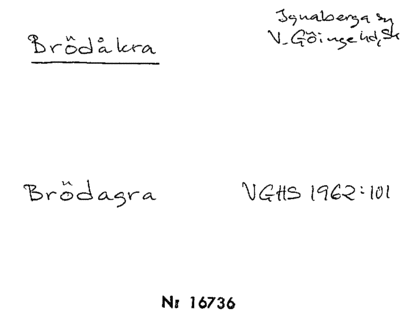 Brödåkra
Ignaberga sn
V. Göinge hd, Sk
Brödagra
VGHS 1962:101
Nr 16736